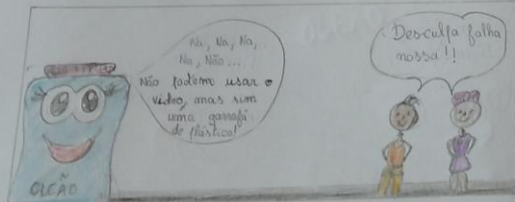 Na, Na, Na,
Na, Não...
Não podem usar o
vidro, mas sim
uma garrafa
de plástico!
Desculpa falha
nossa!!
OLEÃO